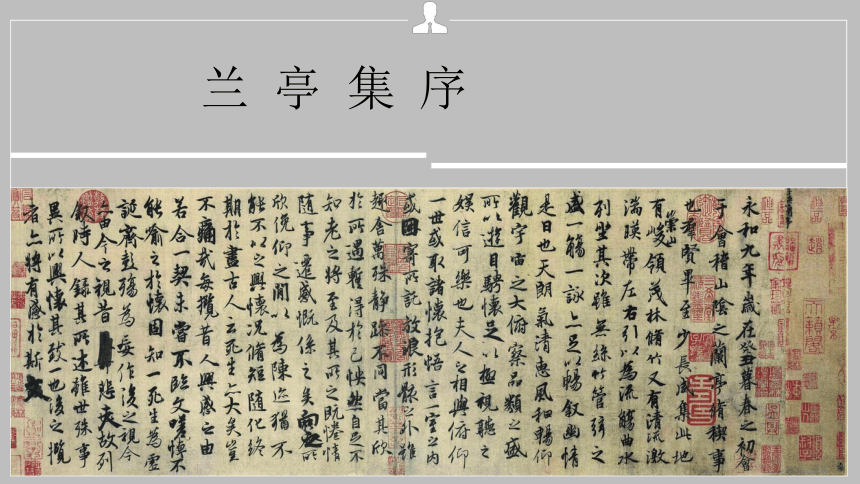 兰亭集序
永和九年歲在癸丑暮春之初會
于會稽山陰之蘭亭脩稧事
也羣賢畢至少長咸集此地
有崇山峻領茂林脩竹又有清流激
湍暎帶左右引以為流觴曲水
列坐其次雖無絲竹管弦之
盛一觴一詠亦足以暢敘幽情
是日也天朗氣清惠風和暢仰
觀宇宙之大俯察品類之盛
所以遊目騁懷足以極視聽之
娛信可樂也夫人之相與俯仰
一世或取諸懷抱悟言一室之內
或因寄所託放浪形骸之外雖
趣舍萬殊靜躁不同當其欣
於所遇蹔得於己怏然自足不
知老之將至及其所之既惓情
隨事遷感慨係之矣向之所
欣俛仰之間以為陳迹猶不
能不以之興懷況脩短隨化終
期於盡古人云死生亦大矣豈
不痛哉每攬昔人興感之由
若合一契未嘗不臨文嗟悼不
能喻之於懷固知一死生為虛
誕齊彭殤為妄作後之視今
亦由今之視昔悲夫故列
敘時人錄其所述雖世殊事
異所以興懷其致一也後之攬
者亦將有感於斯文